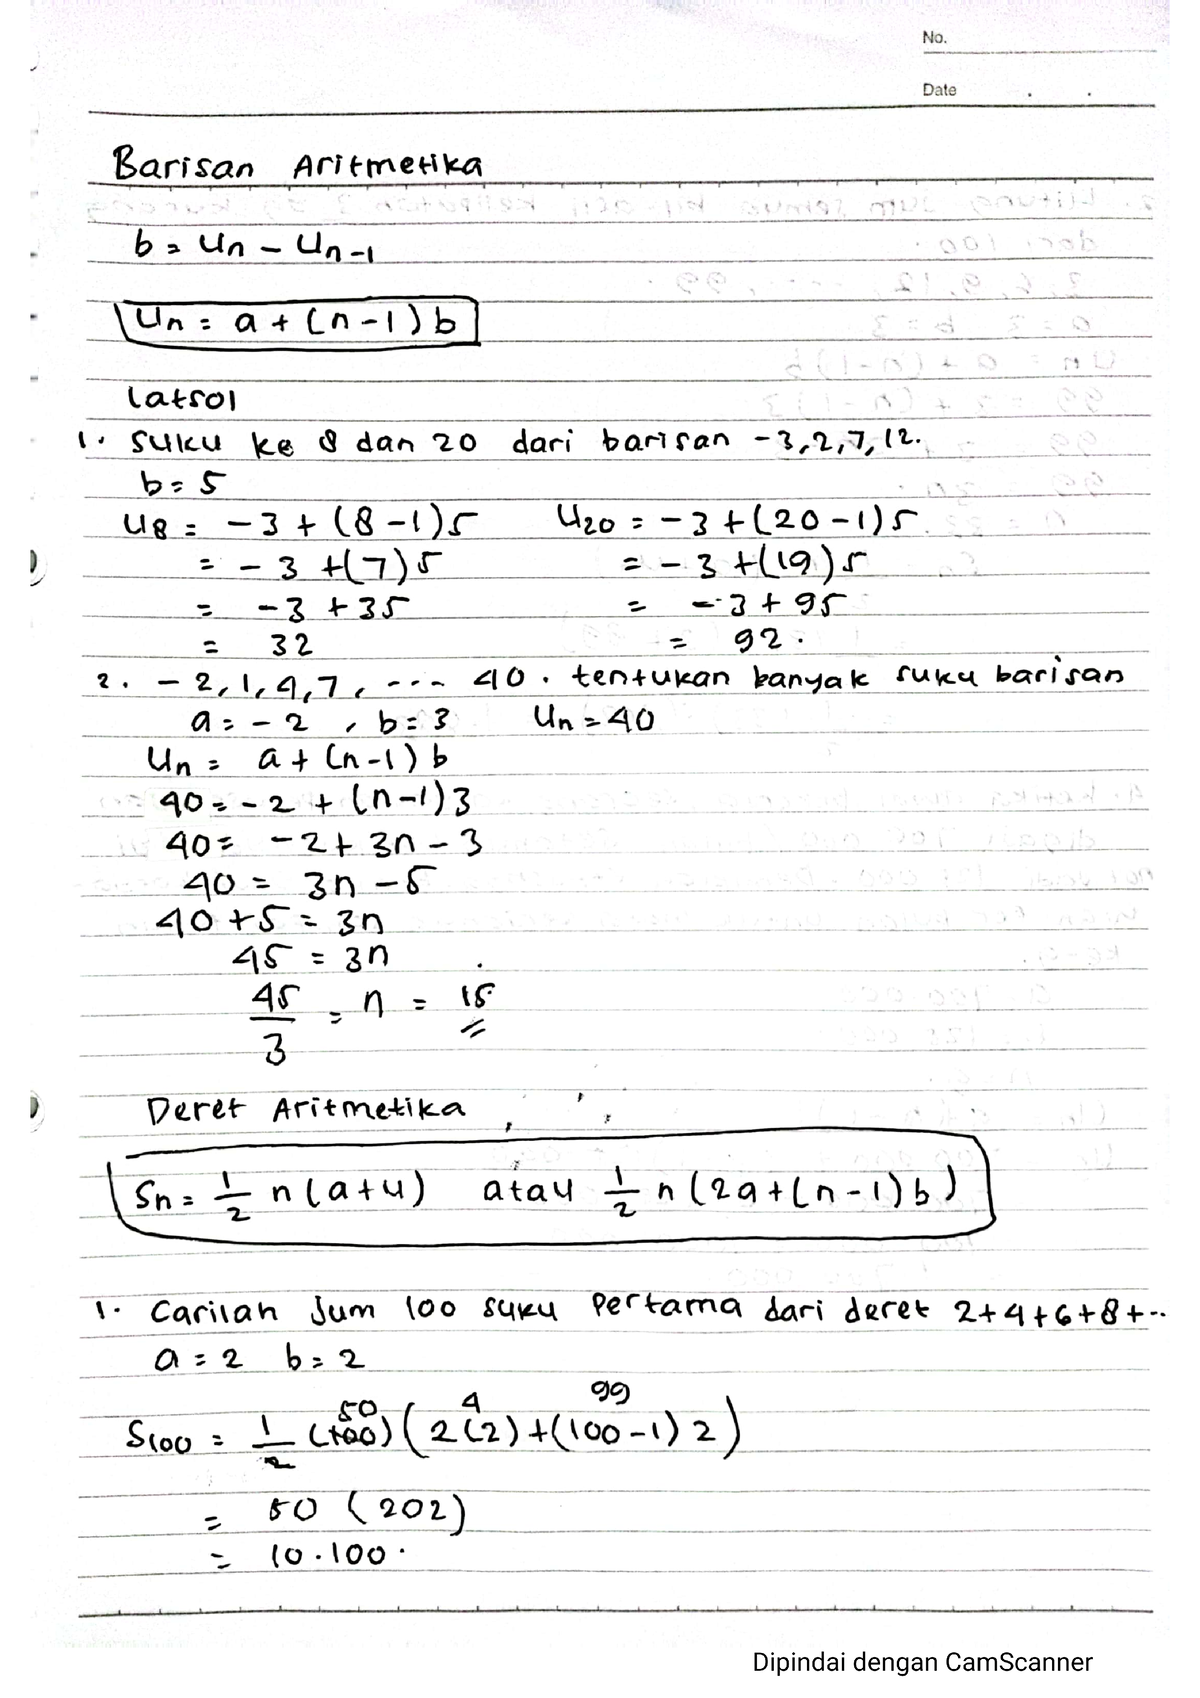 No.
Date
Barisan Aritmetika
b = Un - Un-1
Un = a + (n-1) b
Latsol
1. Suku ke 8 dan 20 dari barisan -3,2,7,12.
b = 5
U8 = -3 + (8-1)5 U20 = -3 + (20-1)5
= -3 + (7)5 = -3 + (19)5
= -3 + 35 = -3 + 95
= 32 = 92.
2. -2, 1, 4, 7, --- 40. tentukan banyak suku barisan
a = -2, b = 3 Un = 40
Un = a + (n-1) b
40 = -2 + (n-1)3
40 = -2 + 3n - 3
40 = 3n - 5
40 + 5 = 3n
45 = 3n
45/3 = n = 15
Deret Aritmetika
Sn = 1/2 n(a+u) atau 1/2 n(2a+(n-1)b)
1. Carilah Jum 100 suku pertama dari deret 2+4+6+8+...
a = 2 b = 2
50 4 99
S100 = 1/2 (100)(2(2)+(100-1)2)
= 50 (202)
= 10.100.
Dipindai dengan CamScanner